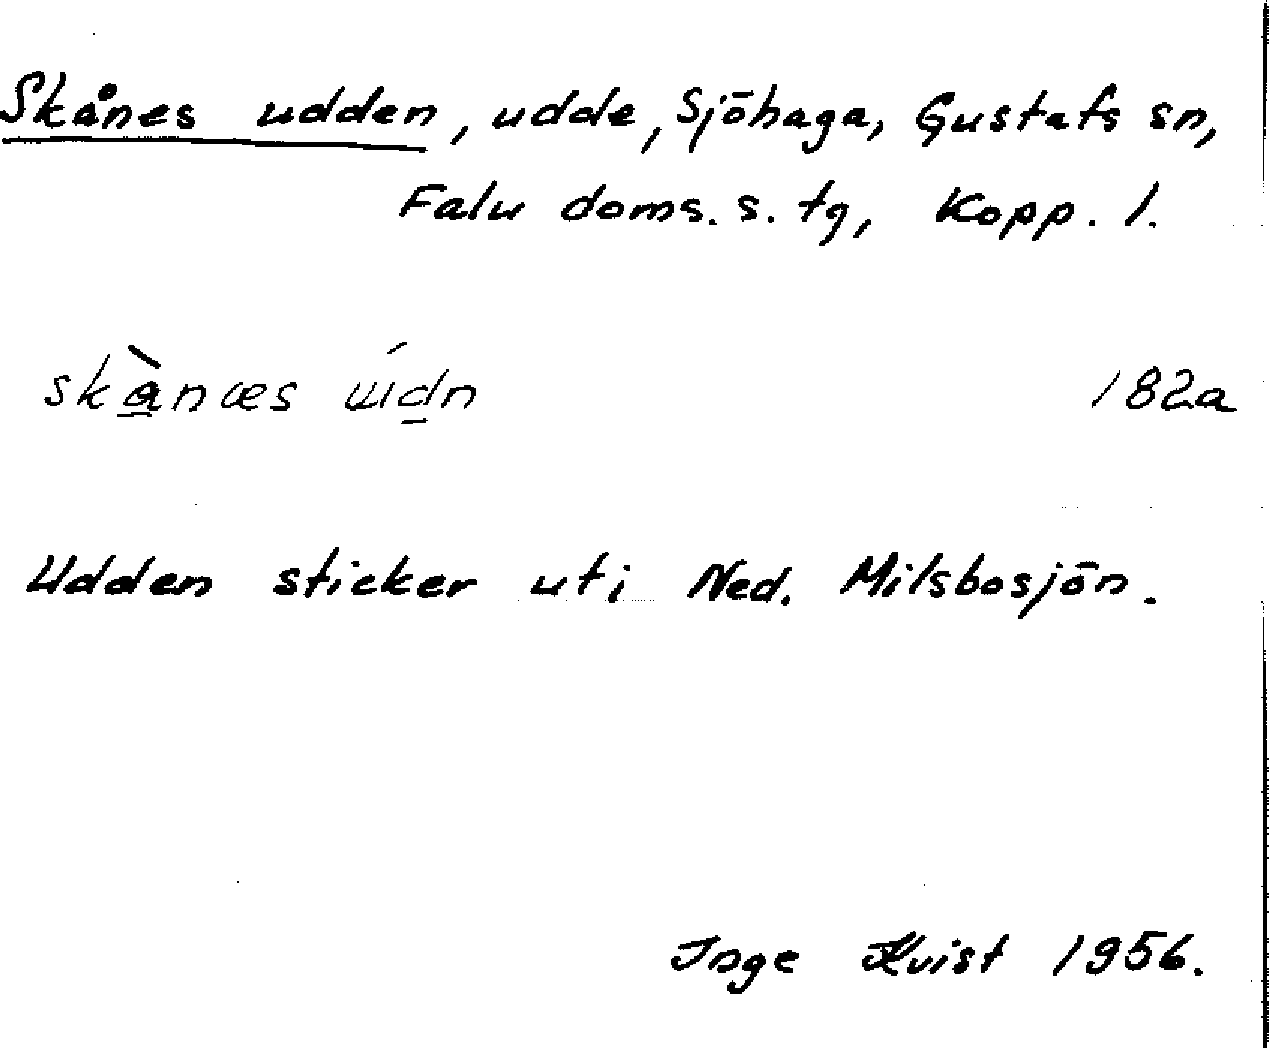 Skånes udden, udde, Sjöhaga, Gustafs sn,
Falu doms. s. tg, Kopp. l.
182a
Udden sticker uti Ned. Milsbosjön.
Inge Kvist 1956.